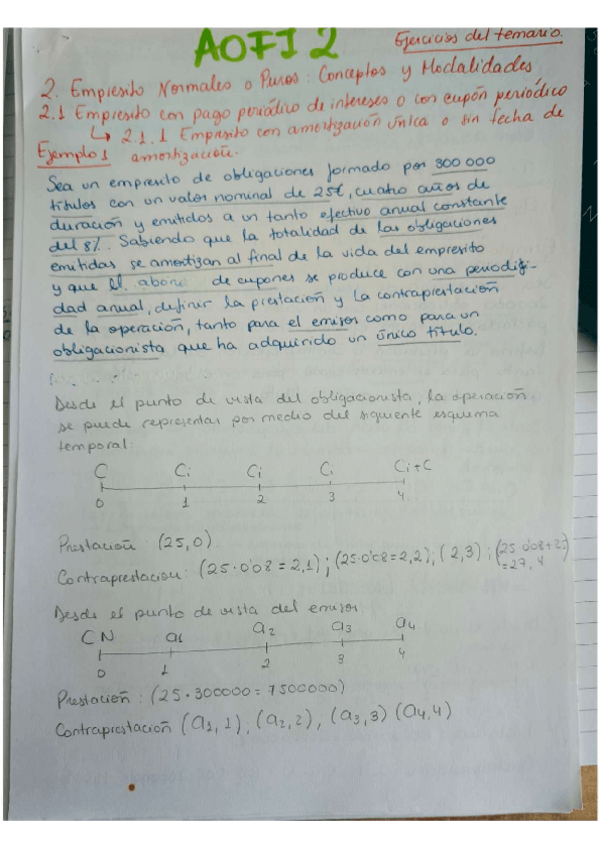 AOFI 2
Ejercicios del temario.
2. Empresito Normales o Puros: Conceptos y Modalidades
2.1 Empresito con pago periódico de intereses o con cupón periódico
↳ 2.1.1 Empresito con amortización única o sin fecha de
Ejemplo 1 amortización.
Sea un empresito de obligaciones formado por 300 000
títulos con un valor nominal de 25€, cuatro años de
duración y emitidos a un tanto efectivo anual constante
del 8%. Sabiendo que la totalidad de las obligaciones
emitidas se amortizan al final de la vida del empresito
y que el abono de cupones se produce con una periodici-
dad anual, definir la prestación y la contraprestación
de la operación, tanto para el emisor como para un
obligacionista que ha adquirido un único título.
Desde el punto de vista del obligacionista, la operación,
se puede representar por medio del siguiente esquema
temporal:
C Ci Ci Ci Ci+C
0 1 2 3 4
Prestación: (25,0)
Contraprestación: (25·0'08=2,1); (25·0'08=2,2), (2,3); (25·0'08+25=27,4)
Desde el punto de vista del emisor
CN a1 a2 a3 a4
0 1 2 3 4
Prestación: (25·300000=7500000)
Contraprestación (a1,1), (a2,2), (a3,3) (a4,4)